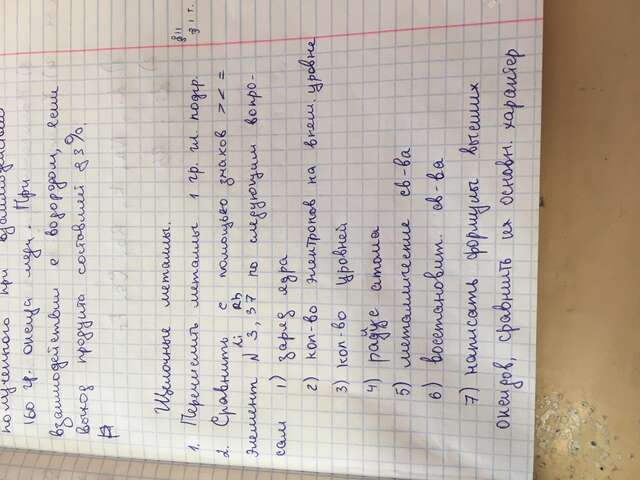 полученного при взаимодействии
160 гр. оксида меди. При
взаимодействии с водородом, если
выход продукта составляет 83%.
Щелочные металлы.
1. Перечислить металлы 1 гр. гл. подгр.
2. Сравнить с помощью знаков > < =
Li Rb
элемент N 3, 37 по следующим вопро-
сам 1) заряд ядра
2) кол-во электронов на внеш. уровне
3) кол-во уровней
4) радиус атома
5) металлические св-ва
6) восстановит. св-ва
7) написать формулы высших
оксидов, сравнить их основн. характер